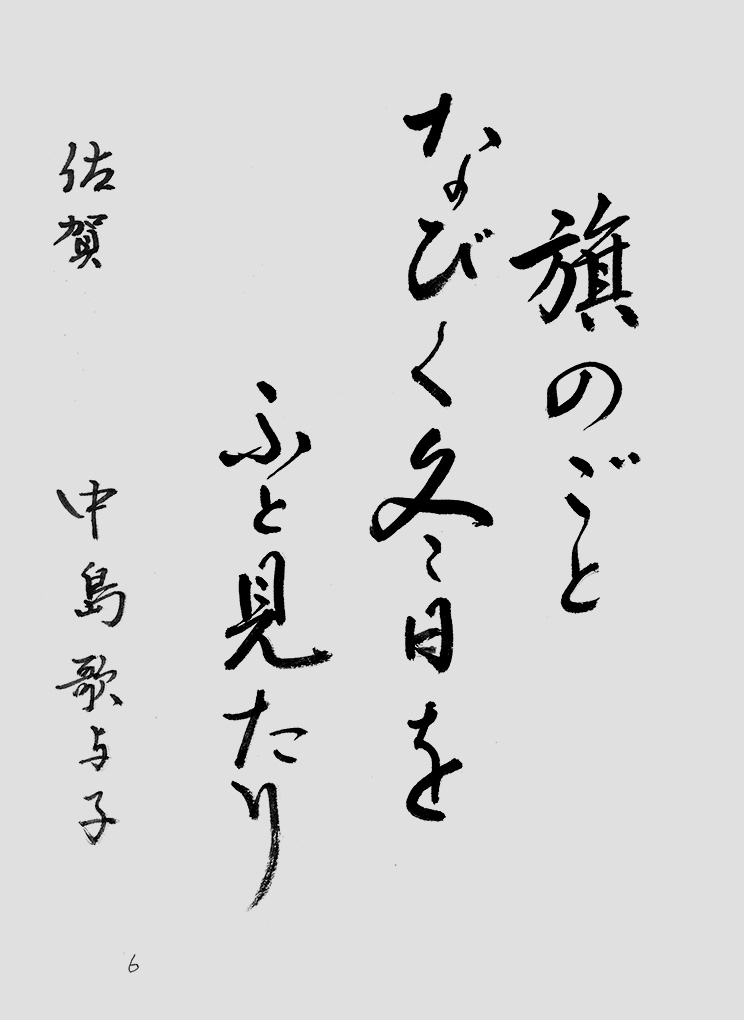 旗のごと
なびく冬日を
ふと見たり
佐賀 中島歌与子
6